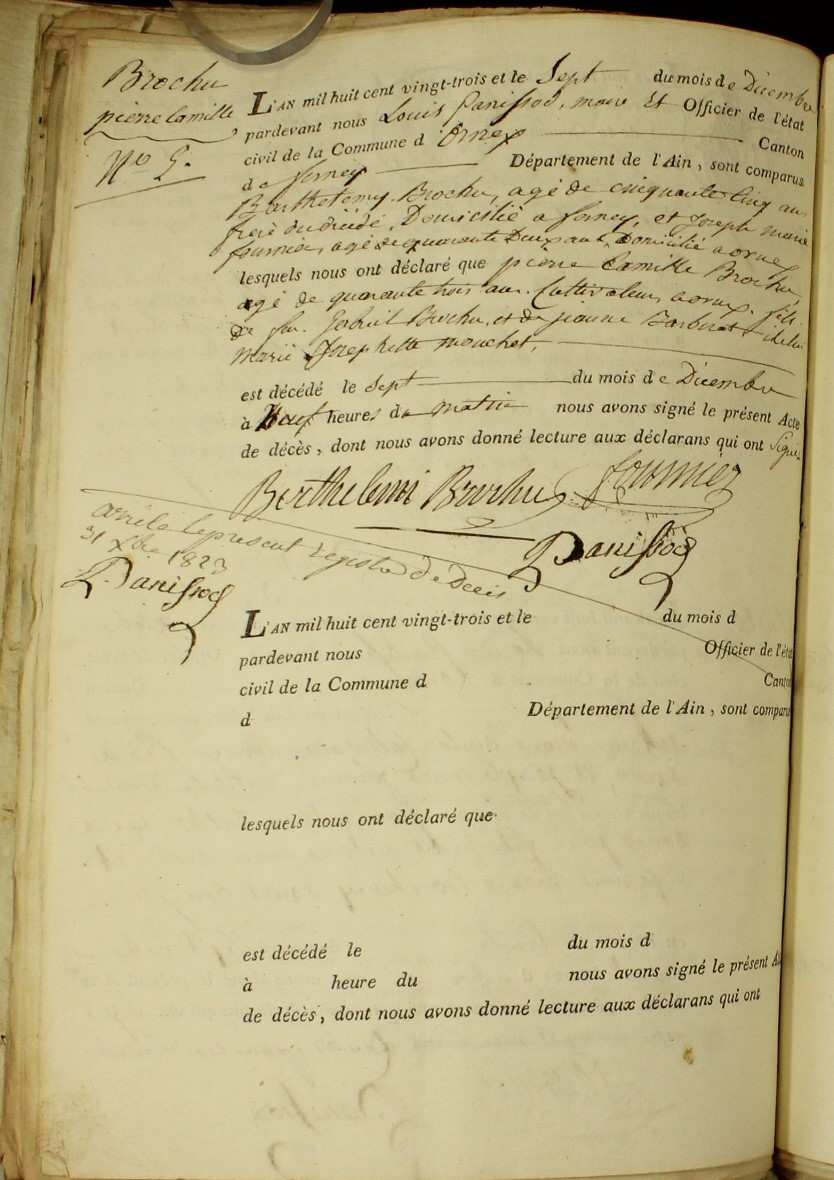 Brochu
pierre Camille
No 5.
L'AN mil huit cent vingt-trois et le Sept du mois de Décembre
pardevant nous Louis Panissod, maire et Officier de l'état
civil de la Commune d'Ornex Canton
de ferney Département de l'Ain, sont comparus
Barthelemy Brochu, agé de cinquante cinq ans
frere du décédé, Domicilié a ferney, et Joseph marie
fournier, agé de quarante Deux ans, Domicilié a ornex
lesquels nous ont déclaré que pierre Camille Brochu,
agé de quarante trois ans, Cultivateur a ornex, fils
de feu Gabriel Brochu, et de jeanne Barberat
marié Josephette mouchet,
est décédé le sept du mois de Décembre
à heures du matin nous avons signé le présent Acte
de décès, dont nous avons donné lecture aux déclarans qui ont signé
Berthelemi Brochu fournier
Panissod
arrêté le present registre de Décès
31 Xbre 1823
Panissod
L'AN mil huit cent vingt-trois et le du mois d
pardevant nous Officier de l'état
civil de la Commune d Canton
d Département de l'Ain, sont comparus
lesquels nous ont déclaré que
est décédé le du mois d
à heure du nous avons signé le présent
de décès, dont nous avons donné lecture aux déclarans qui ont